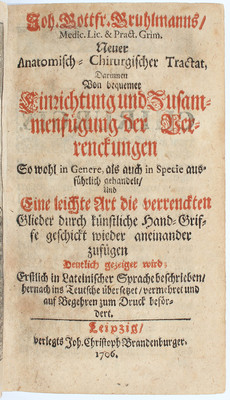 Joh. Gottfr. Bruhlmanns/
Medic. Lic. & Pract. Grim.
Neuer
Anatomisch-Chirurgischer Tractat,
Darinnen
Von bequemer
Einrichtung und Zusam-
menfügung der Ver-
renckungen
So wohl in Genere, als auch in Specie aus-
führlich gehandelt/
Und
Eine leichte Art die verrenckten
Glieder durch künstliche Hand-Grif-
fe geschickt wieder aneinander
zufügen
Deutlich gezeiget wird;
Erstlich in Lateinischer Sprache beschrieben/
hernach ins Teutsche übersetzet/vermehret und
auf Begehren zum Druck beför-
dert.
Leipzig/
verlegts Joh. Christoph Brandenburger.
1706.